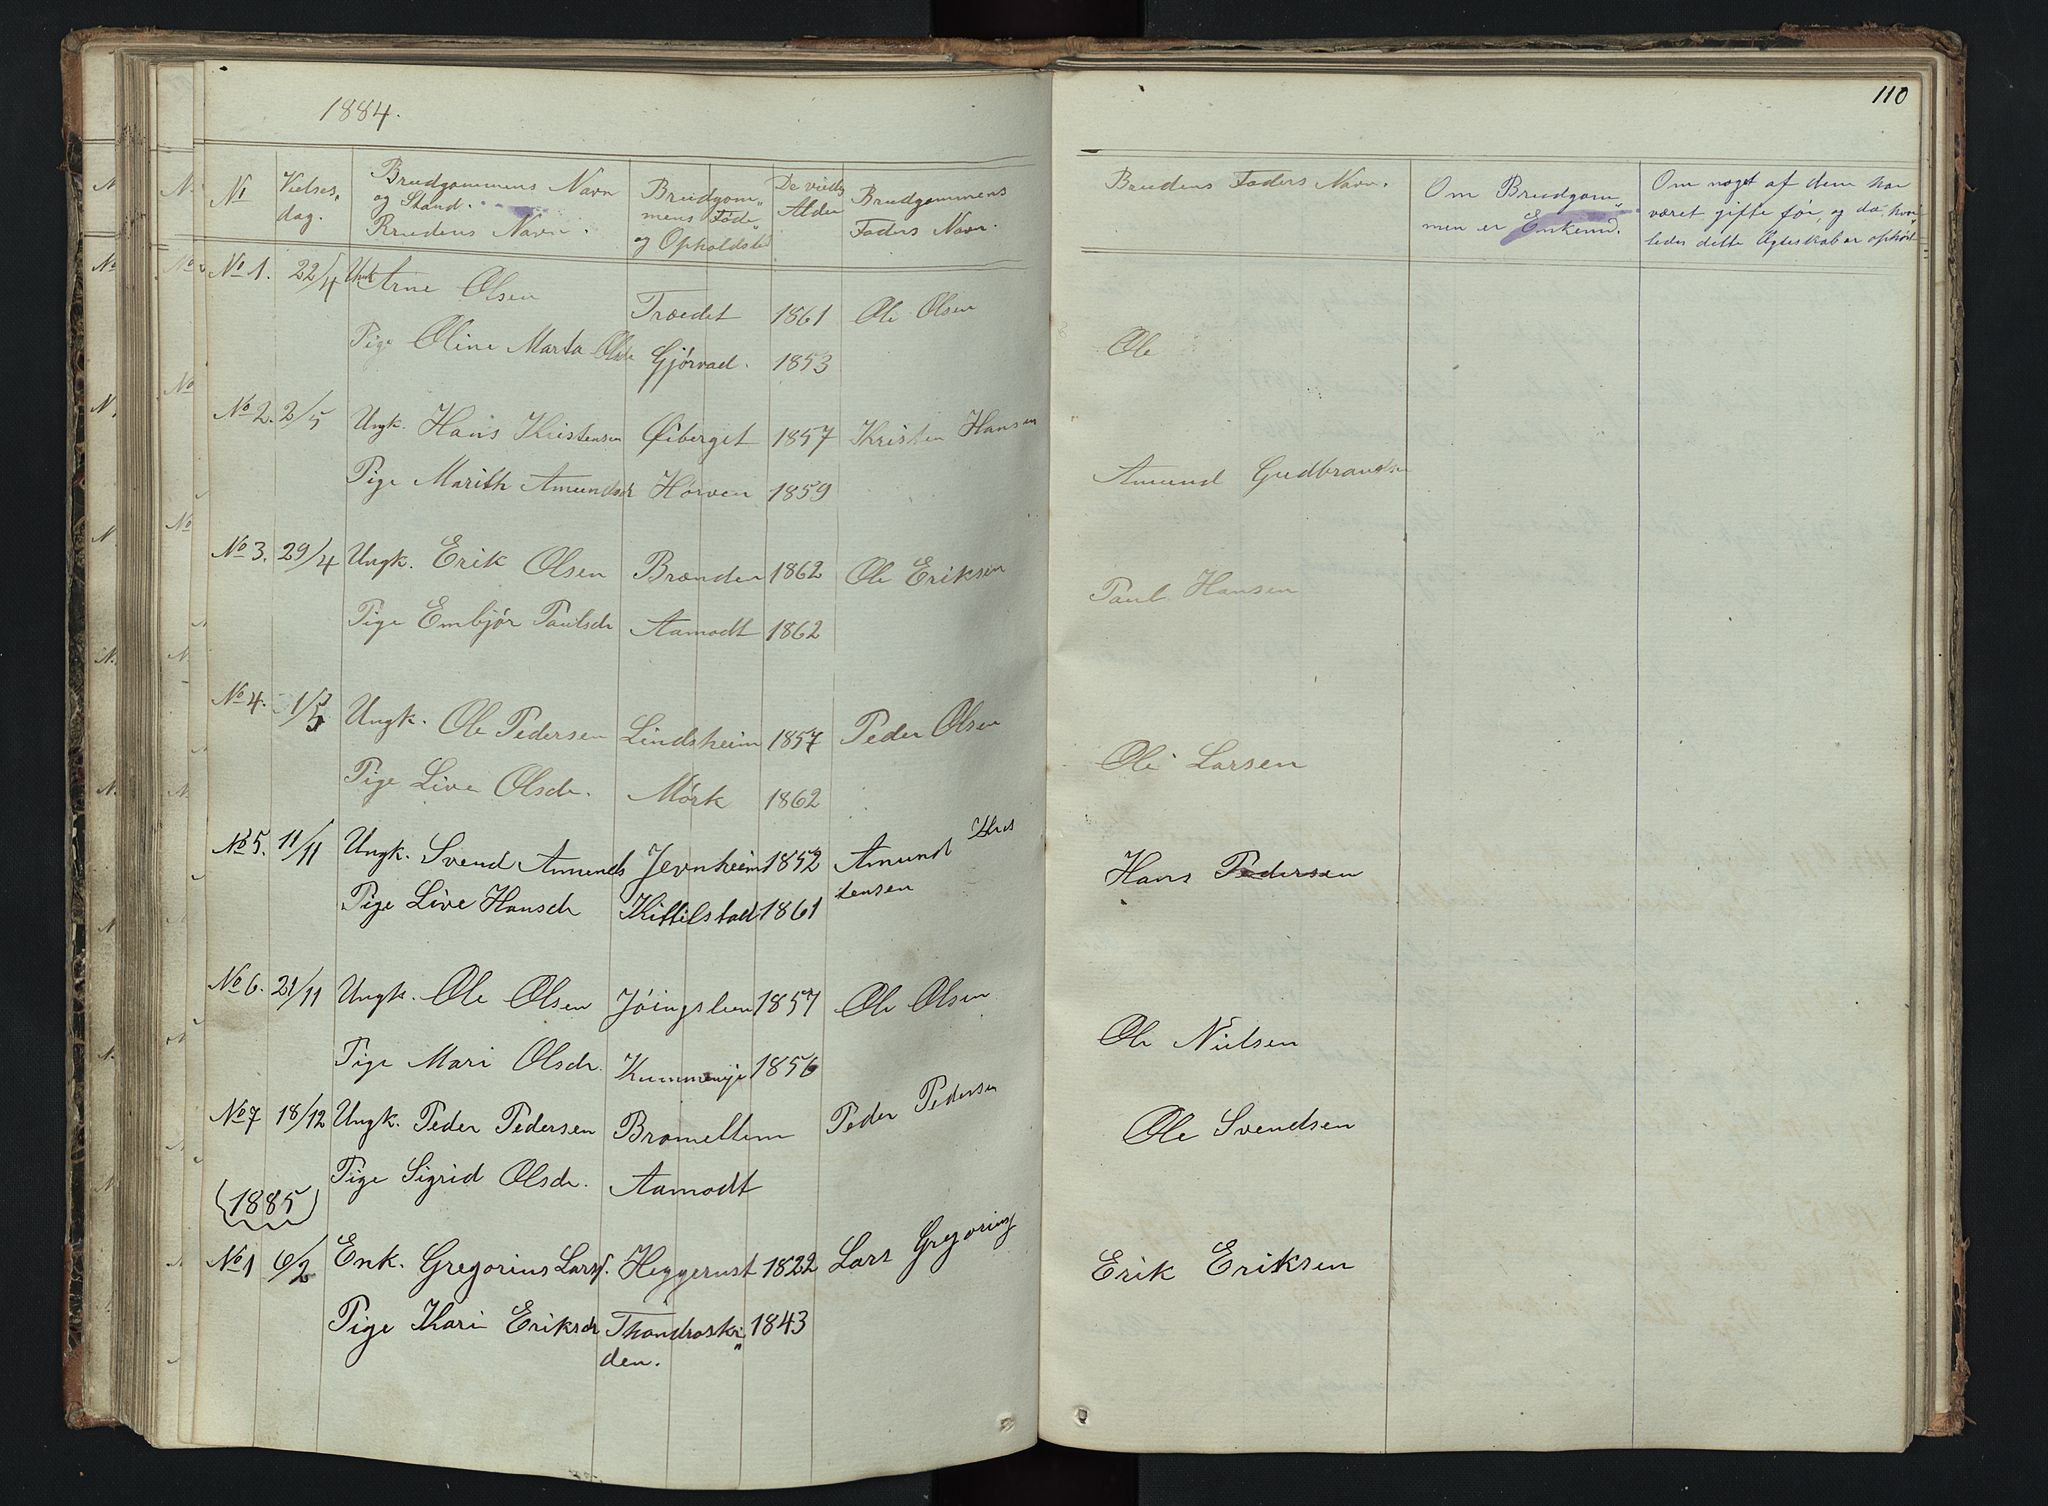 1884.
No
Vielses,
dag.
Brudgommens Navn
og Stand.
Brudens Navn.
Brudgom„
mens Føde„
og Opholdsted
De viedes
Alder
Brudgommens
Faders Navn.
No 1. 22/4 Ungk. Arne Olsen Træedet 1861 Ole Olsen
Pige Oline Marta Olsdr Gjørvad. 1853
No 2. 2/5 Ungk. Hans Kristensen Øiberget 1857 Kristen Hansen
Pige Marith Amundsdr Hørven 1859
No 3. 29/4 Ungk. Erik Olsen Brænden 1862 Ole Eriksen
Pige Embjør Paulsdr Aamodt 1862
No 4. 1/5 Ungk. Ole Pedersen Lindsheim 1857 Peder Olsen
Pige Live Olsdr. Mørk 1862
No 5. 11/11 Ungk. Svend Amunds Jevnheim 1852 Amund Kris
tensen
Pige Live Hansdr Kittilstad 1861
No 6. 21/11 Ungk. Ole Olsen Jöingslien 1857 Ole Olsen
Pige Mari Olsdr. Kummenje 1856
No 7 18/12 Ungk. Peder Pedersen Bromellem Peder Pedersen
Pige Sigrid Olsdr. Aamodt
(1885)
No 1 6/2 Enk. Gregorius Larss. Heggerust 1822 Lars Gregorius
Pige Kari Eriksdr Thondraski„ 1843
den.
110
Brudens Faders Navn.
Om Brudgom„
men er Enkemd.
Om noget af dem har
været gifte før, og da, hvor
ledes dette Ægteskab er ophørt
Ole
Amund Gudbrandsen
Paul Hansen
Ole Larsen
Hans Pedersen
Ole Nielsen
Ole Svendsen
Erik Eriksen